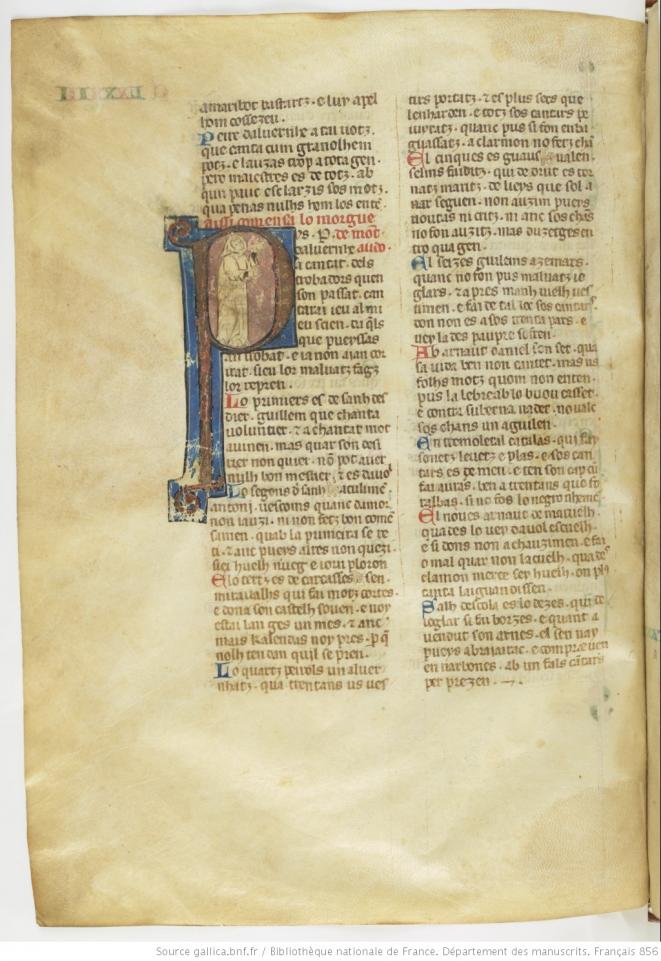 amaribot bastartz · e luy apel
hom cossezeu ·
Peire daluernhe a tal uotz ·
que canta cum granolhem
potz · e lauzas trop a tota gen ·
pero maiestres es de totz · ab
qun pauc esclarzis sos motz ·
qua penas nulhs hom los enten
aissi comensa lo morgue
ys · P · de mot
daluernhe audo ·
a cantat · dels
trobadors quen
son passat · can
tarai ieu al mi
eu scien · da qls
que pueyssas
an trobat · e ia non aian cor
irat · sieu lor maluatz fagz
lor repren ·
Lo primiers es de sanh des
dier · guillem que chanta
uoluntier · et a chantat mot
auinen · mas quar son desi
rier non quier · non pot auer
nulh bon mestier · et es dauol
Lo segons de sanh
antoni · uescoms quanc damor
non iauzi · ni non fetz bon comen
samen · quab la primeira se
ti · et anc pueys alres non quezi ·
siei huelh nueg e iorn ploron
E lo tertz es de carcasses ·
miraualhs qui fai motz cortes ·
e dona son castelh souen · e noy
estai lan ges un mes · et anc
mais kalendas noy pres · per que
nolh ten dan quil se pren ·
Lo quartz peirols un aluer
nhatz · qua trentans us ues
tirs portatz · et es plus secx que
lenharden · e totz sos cantars pe
iuratz · quanc pus si fon enba
guassatz · a clarmon no fetz chan
El cinques es guaus
selms faiditz · qui de drut es tor
natz maritz · de lieys que sol a
nar seguen · non auzim pueys
uoutas ni critz · ni anc sos chans
no fon auzitz · mas duzerges en
tro qua gen ·
El seizes guilems azemars ·
quanc no fon pus maluatz io
glars · et a pres manh uielh ues
timen · e fai de tal loc sos cantars
don non es a sos trenta pars · e
uey la des paupre sofren ·
Ab arnaut daniel son set · qua
sa uida ben non cantet · mas us
folhs motz quom non enten ·
pus la lebre ab lo buou casset ·
e contra suberna nadet · no ualc
sos chans un aguilen ·
En tremoletal catalas · qui fay
sonetz leuetz e plas · e sos can
tars es de men · e ten son cap
fai auras · ben a trentans que fo
ralbas · si no fos lo negre
El noues arnaut de maruelh ·
qua des lo uey dauol escuelh ·
e si dons non a chauzimen · e fai
o mal quar non lacuelh · qua des
clamon merce sey huelh · on plus
canta laigua n dissen ·
Salh descola es lo dezes · qui de
ioglar si fai borzes · e quant a
uendut son arnes · el sen uay
pueys abrazatac · e compra e uen
en narbones · ab un fals cantars
per prezen ·
Source gallica.bnf.fr / Bibliothèque nationale de France. Département des manuscrits. Français 856